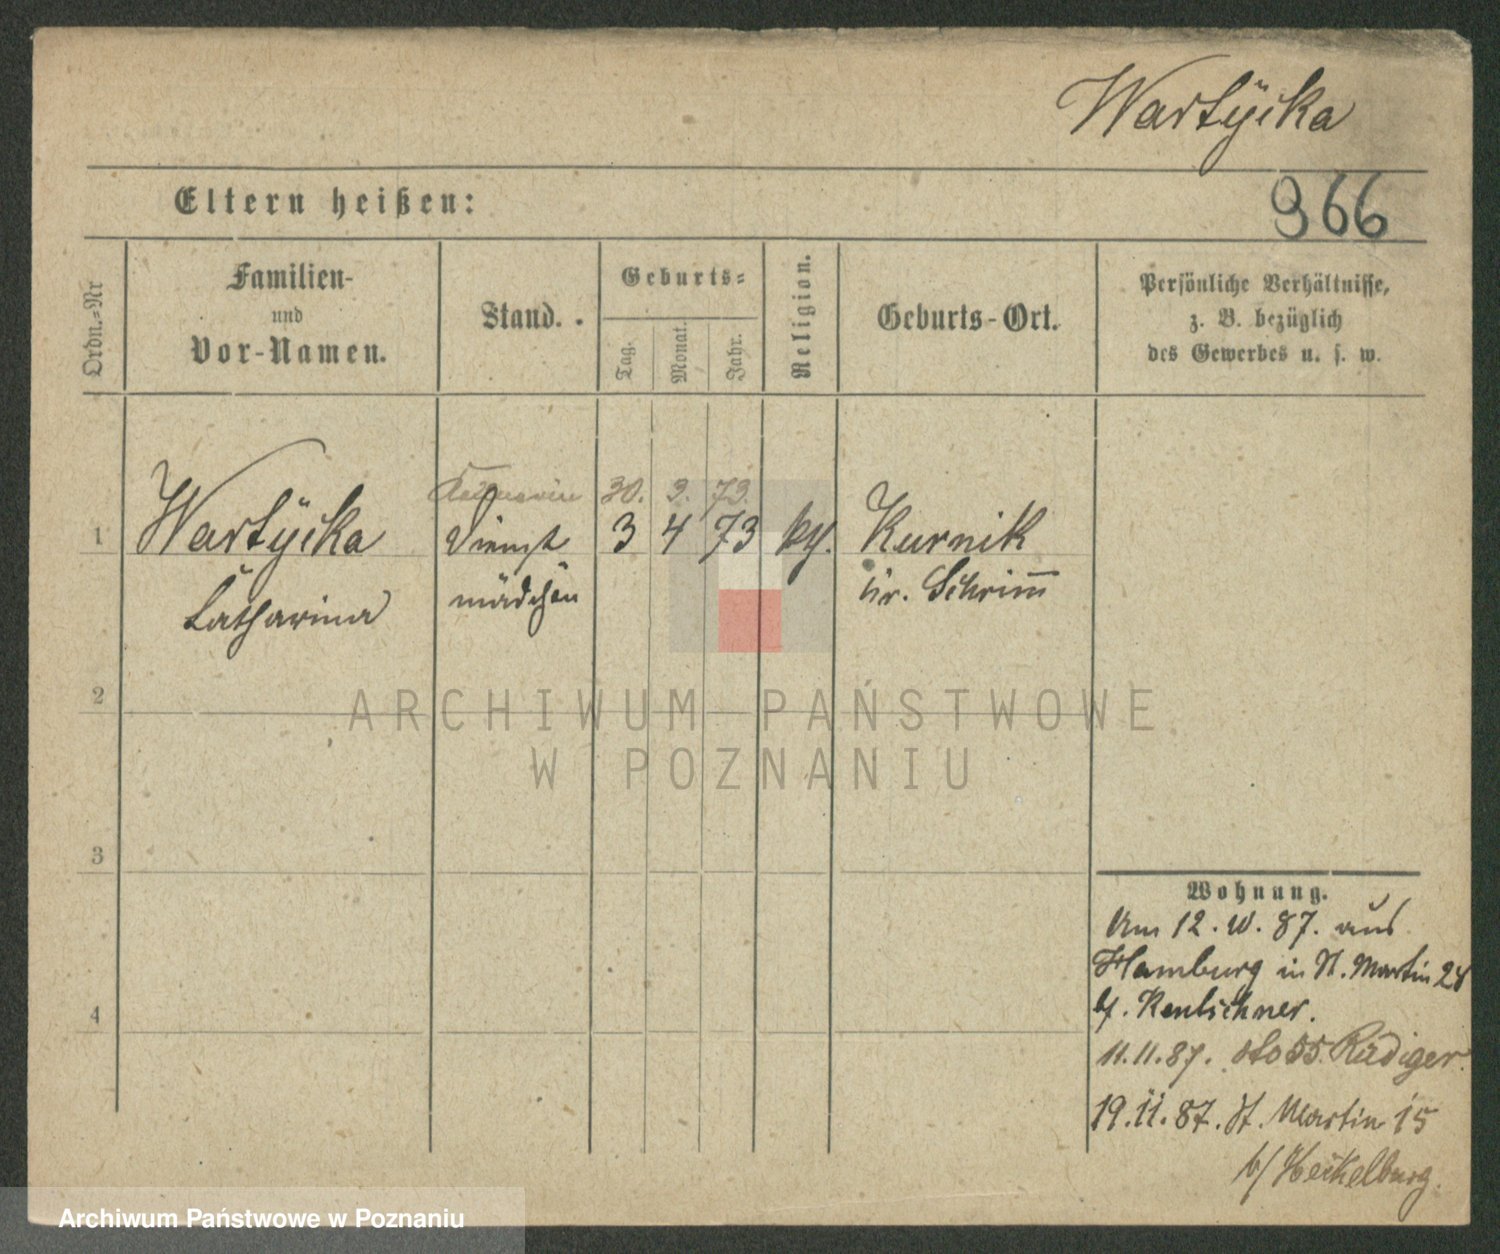 Wartÿcka
966
Eltern heißen:
Ordn.=Nr
Familien-
und
Vor-Namen.
Stand.
Geburts=
Tag.
Monat.
Jahr.
Religion.
Geburts-Ort.
Persönliche Verhältnisse,
z. B. bezüglich
des Gewerbes u. s. w.
30. 3. 73.
1 Wartÿcka Dienst 3 4 73 Kurnik
Catharina mädchen Kr. Schrim̅
2
3
4
ARCHIWUM PAŃSTWOWE
W POZNANIU
Wohnung.
Am 12. 10. 87. aus
Hamburg in St. Martin 28
b/. Rentschner.
11.11.87. dto 55. Rüdiger.
19.11.87. St. Martin 15
b/ Heckelburg.
Archiwum Państwowe w Poznaniu